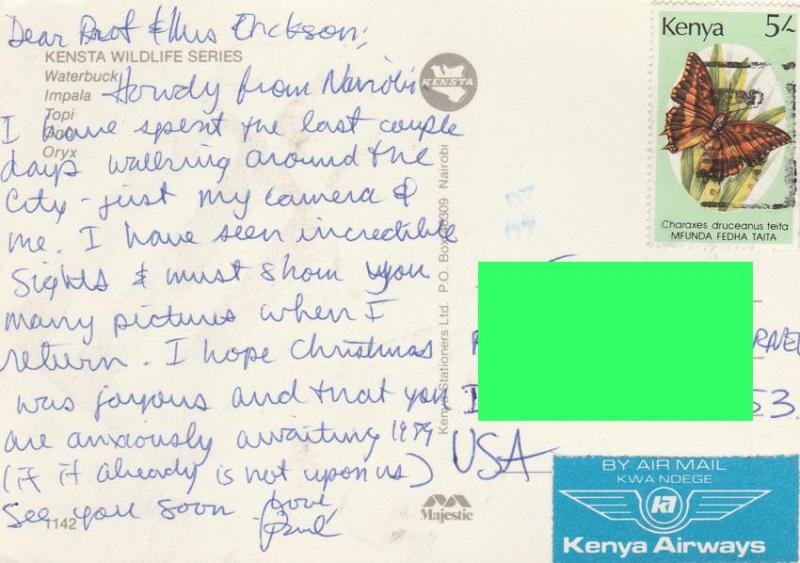 Dear Prof & Mrs Erickson,
KENSTA WILDLIFE SERIES
Waterbuck
Impala
Topi
Oryx
Howdy from Nairobi.
I have spent the last couple
days walking around the
City - just my camera &
me. I have seen incredible
Sights & must show you
many pictures when I
return. I hope Christmas
was joyous and that you
are anxiously awaiting 1989
(if it already is not upon us)
See you soon
Love
Paul
1142
KENSTA
Kenya Stationers Ltd. P.O. Box Nairobi
Majestic
Kenya 5/-
Charaxes druceanus teita
MFUNDA FEDHA TAITA
53
USA
BY AIR MAIL
KWA NDEGE
Kenya Airways